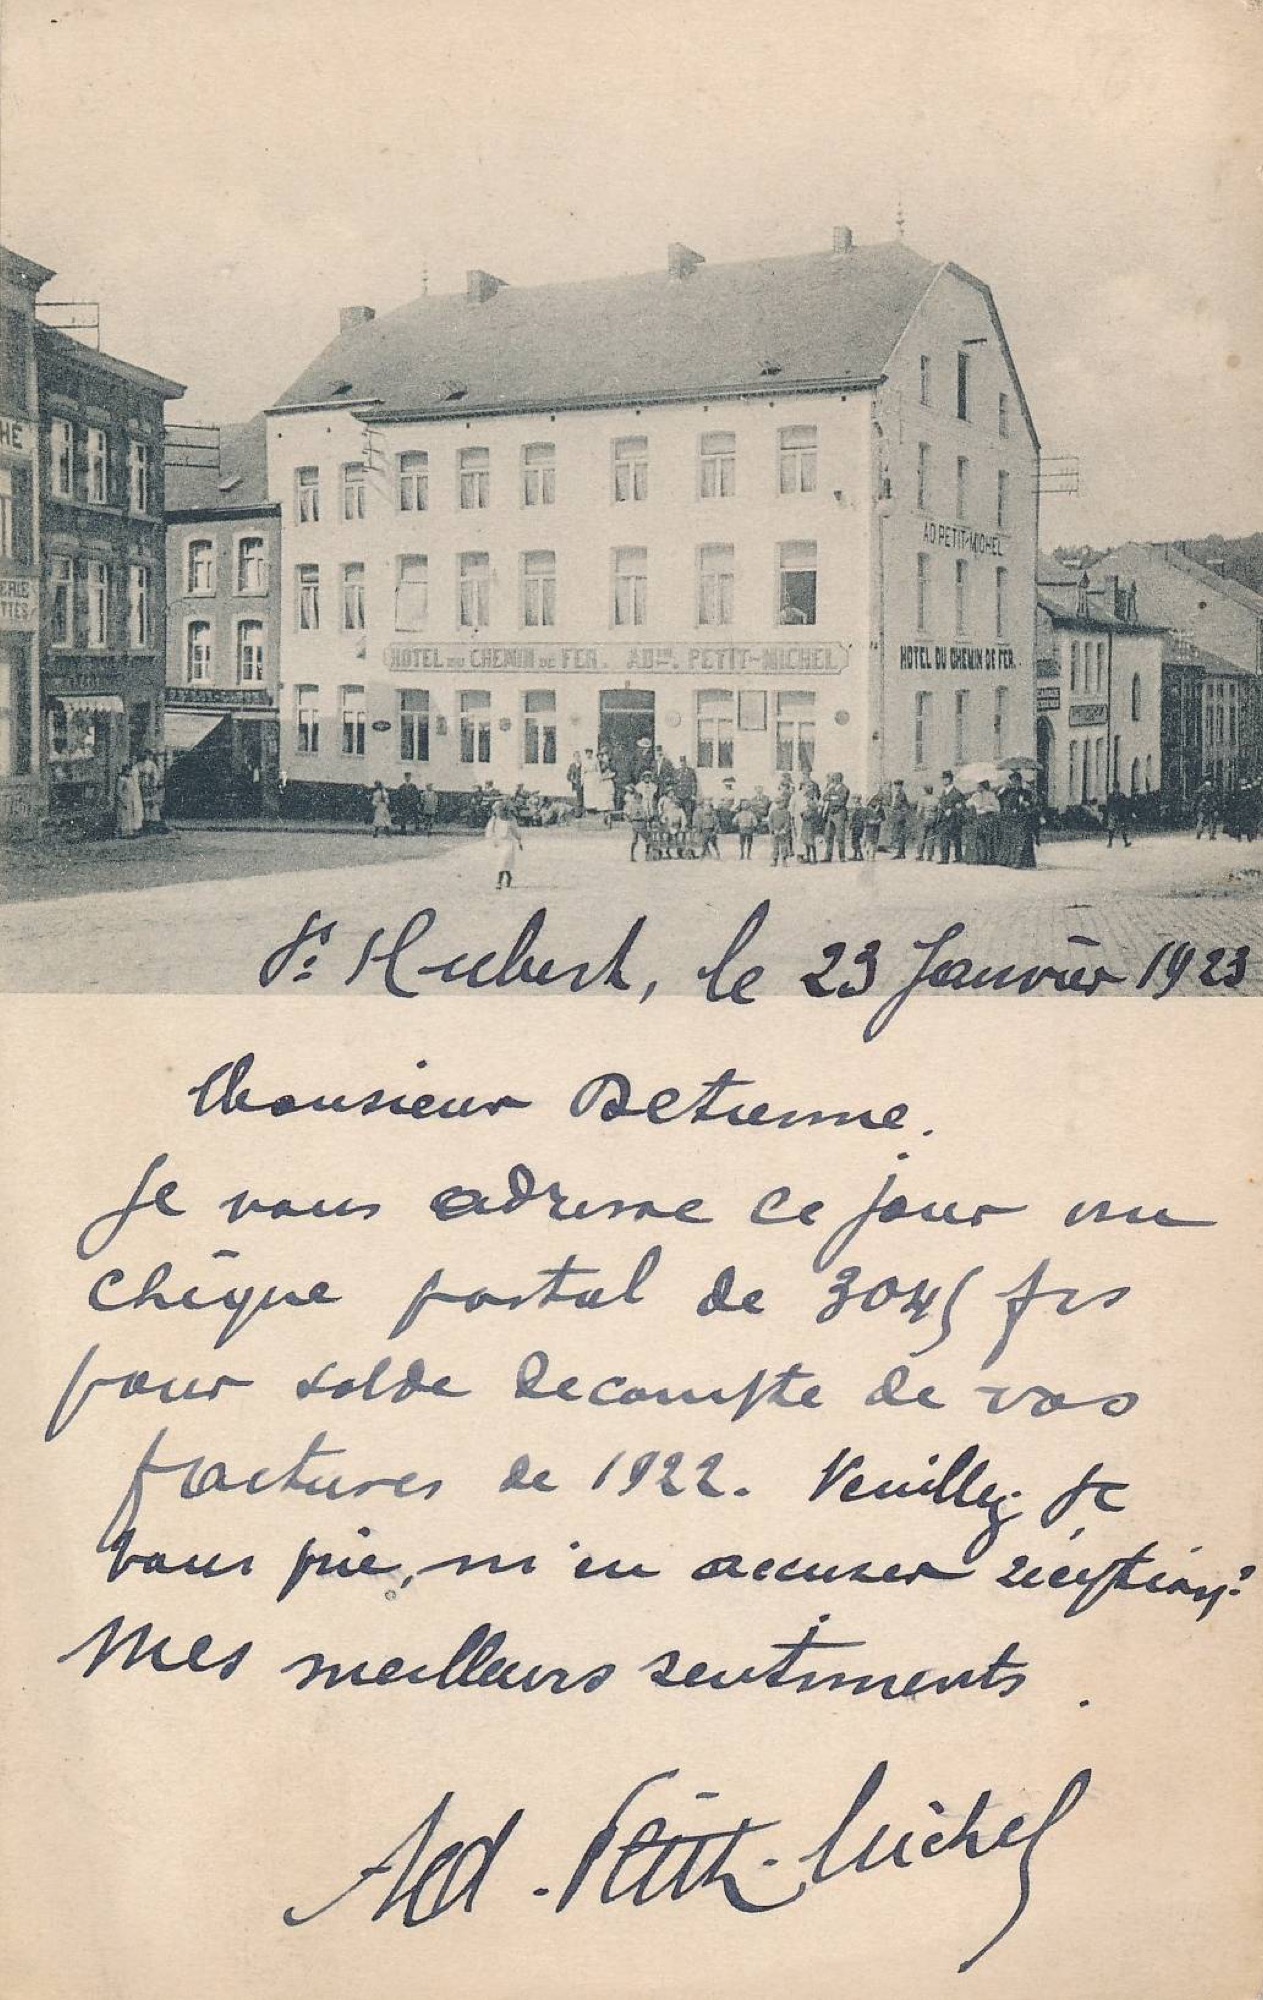 HE
ERIE
TTES
AD. PETIT-MICHEL
HOTEL DU CHEMIN DE FER. ADPHE. PETIT-MICHEL
HOTEL DU CHEMIN DE FER.
St Hubert, le 23 Janvier 1923
Monsieur Detienne.
Je vous adresse ce jour un
chèque postal de 3045 frs
pour solde decompte de vos
factures de 1922. Veuillez, je
vous prie, m'en accuser réception.
Mes meilleurs sentiments.
Ad. Petit-Michel